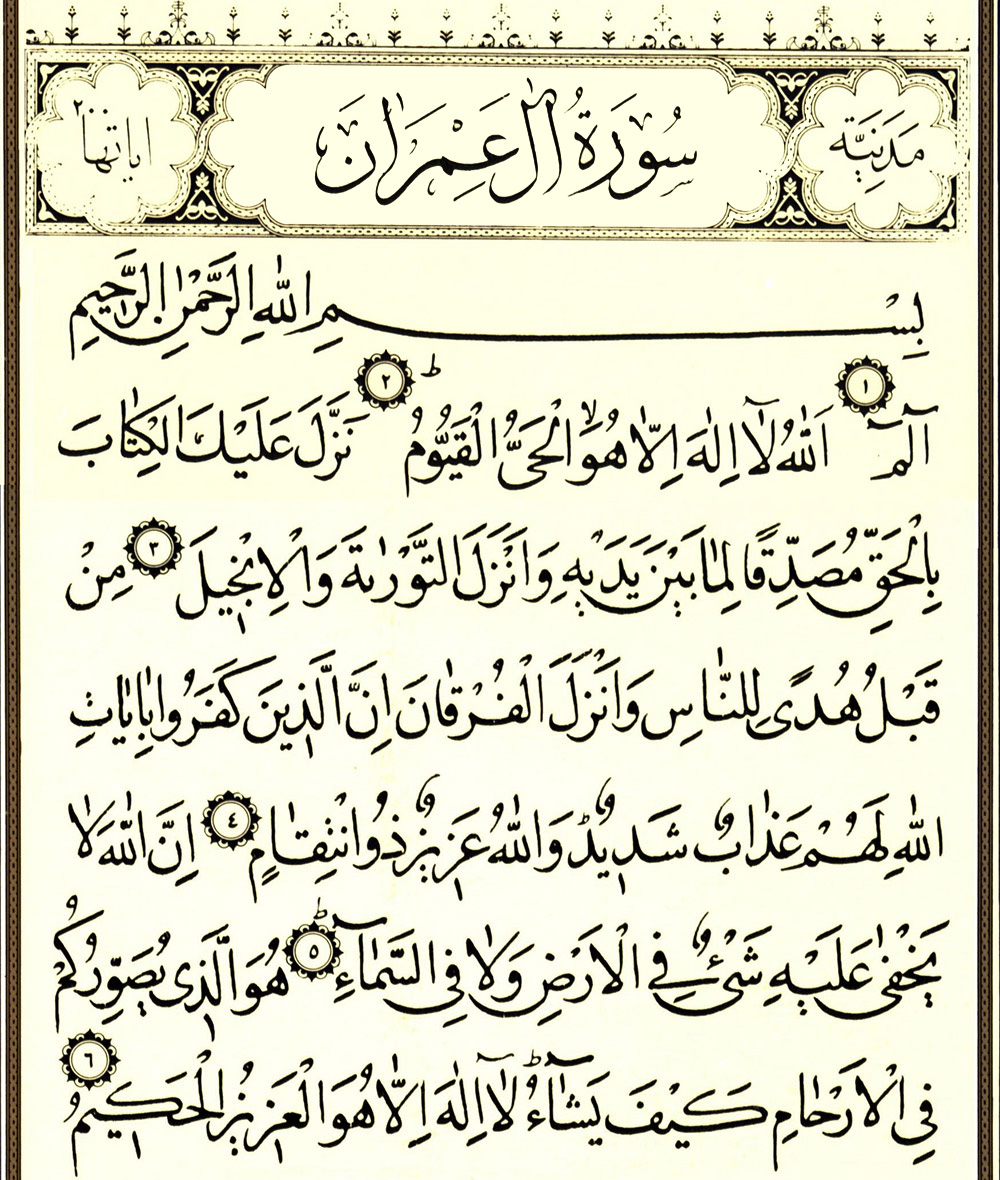 مَدَنِيَّة سُورَةُ اٰلِ عِمْرَانَ اياتها ٢٠٠
بِسْمِ اللّٰهِ الرَّحْمٰنِ الرَّحِيمِ
الٓمٓ ١ اَللّٰهُ لَآ اِلٰهَ اِلَّا هُوَۙ الْحَىُّ الْقَيُّومُؕ ٢ نَزَّلَ عَلَيْكَ الْكِتَابَ
بِالْحَقِّ مُصَدِّقًا لِمَا بَيْنَ يَدَيْهِ وَاَنْزَلَ التَّوْرٰيةَ وَالْاِنْجٖيلَ ٣ مِنْ
قَبْلُ هُدًى لِلنَّاسِ وَاَنْزَلَ الْفُرْقَانَ اِنَّ الَّذٖينَ كَفَرُوا بِاٰيَاتِ
اللّٰهِ لَهُمْ عَذَابٌ شَدٖيدٌ وَاللّٰهُ عَزٖيزٌ ذُو انْتِقَامٍ ٤ اِنَّ اللّٰهَ لَا
يَخْفٰى عَلَيْهِ شَىْءٌ فِى الْاَرْضِ وَلَا فِى السَّمَٓاءِؕ ٥ هُوَ الَّذٖى يُصَوِّرُكُمْ
فِى الْاَرْحَامِ كَيْفَ يَشَٓاءُؕ لَآ اِلٰهَ اِلَّا هُوَ الْعَزٖيزُ الْحَكٖيمُ ٦